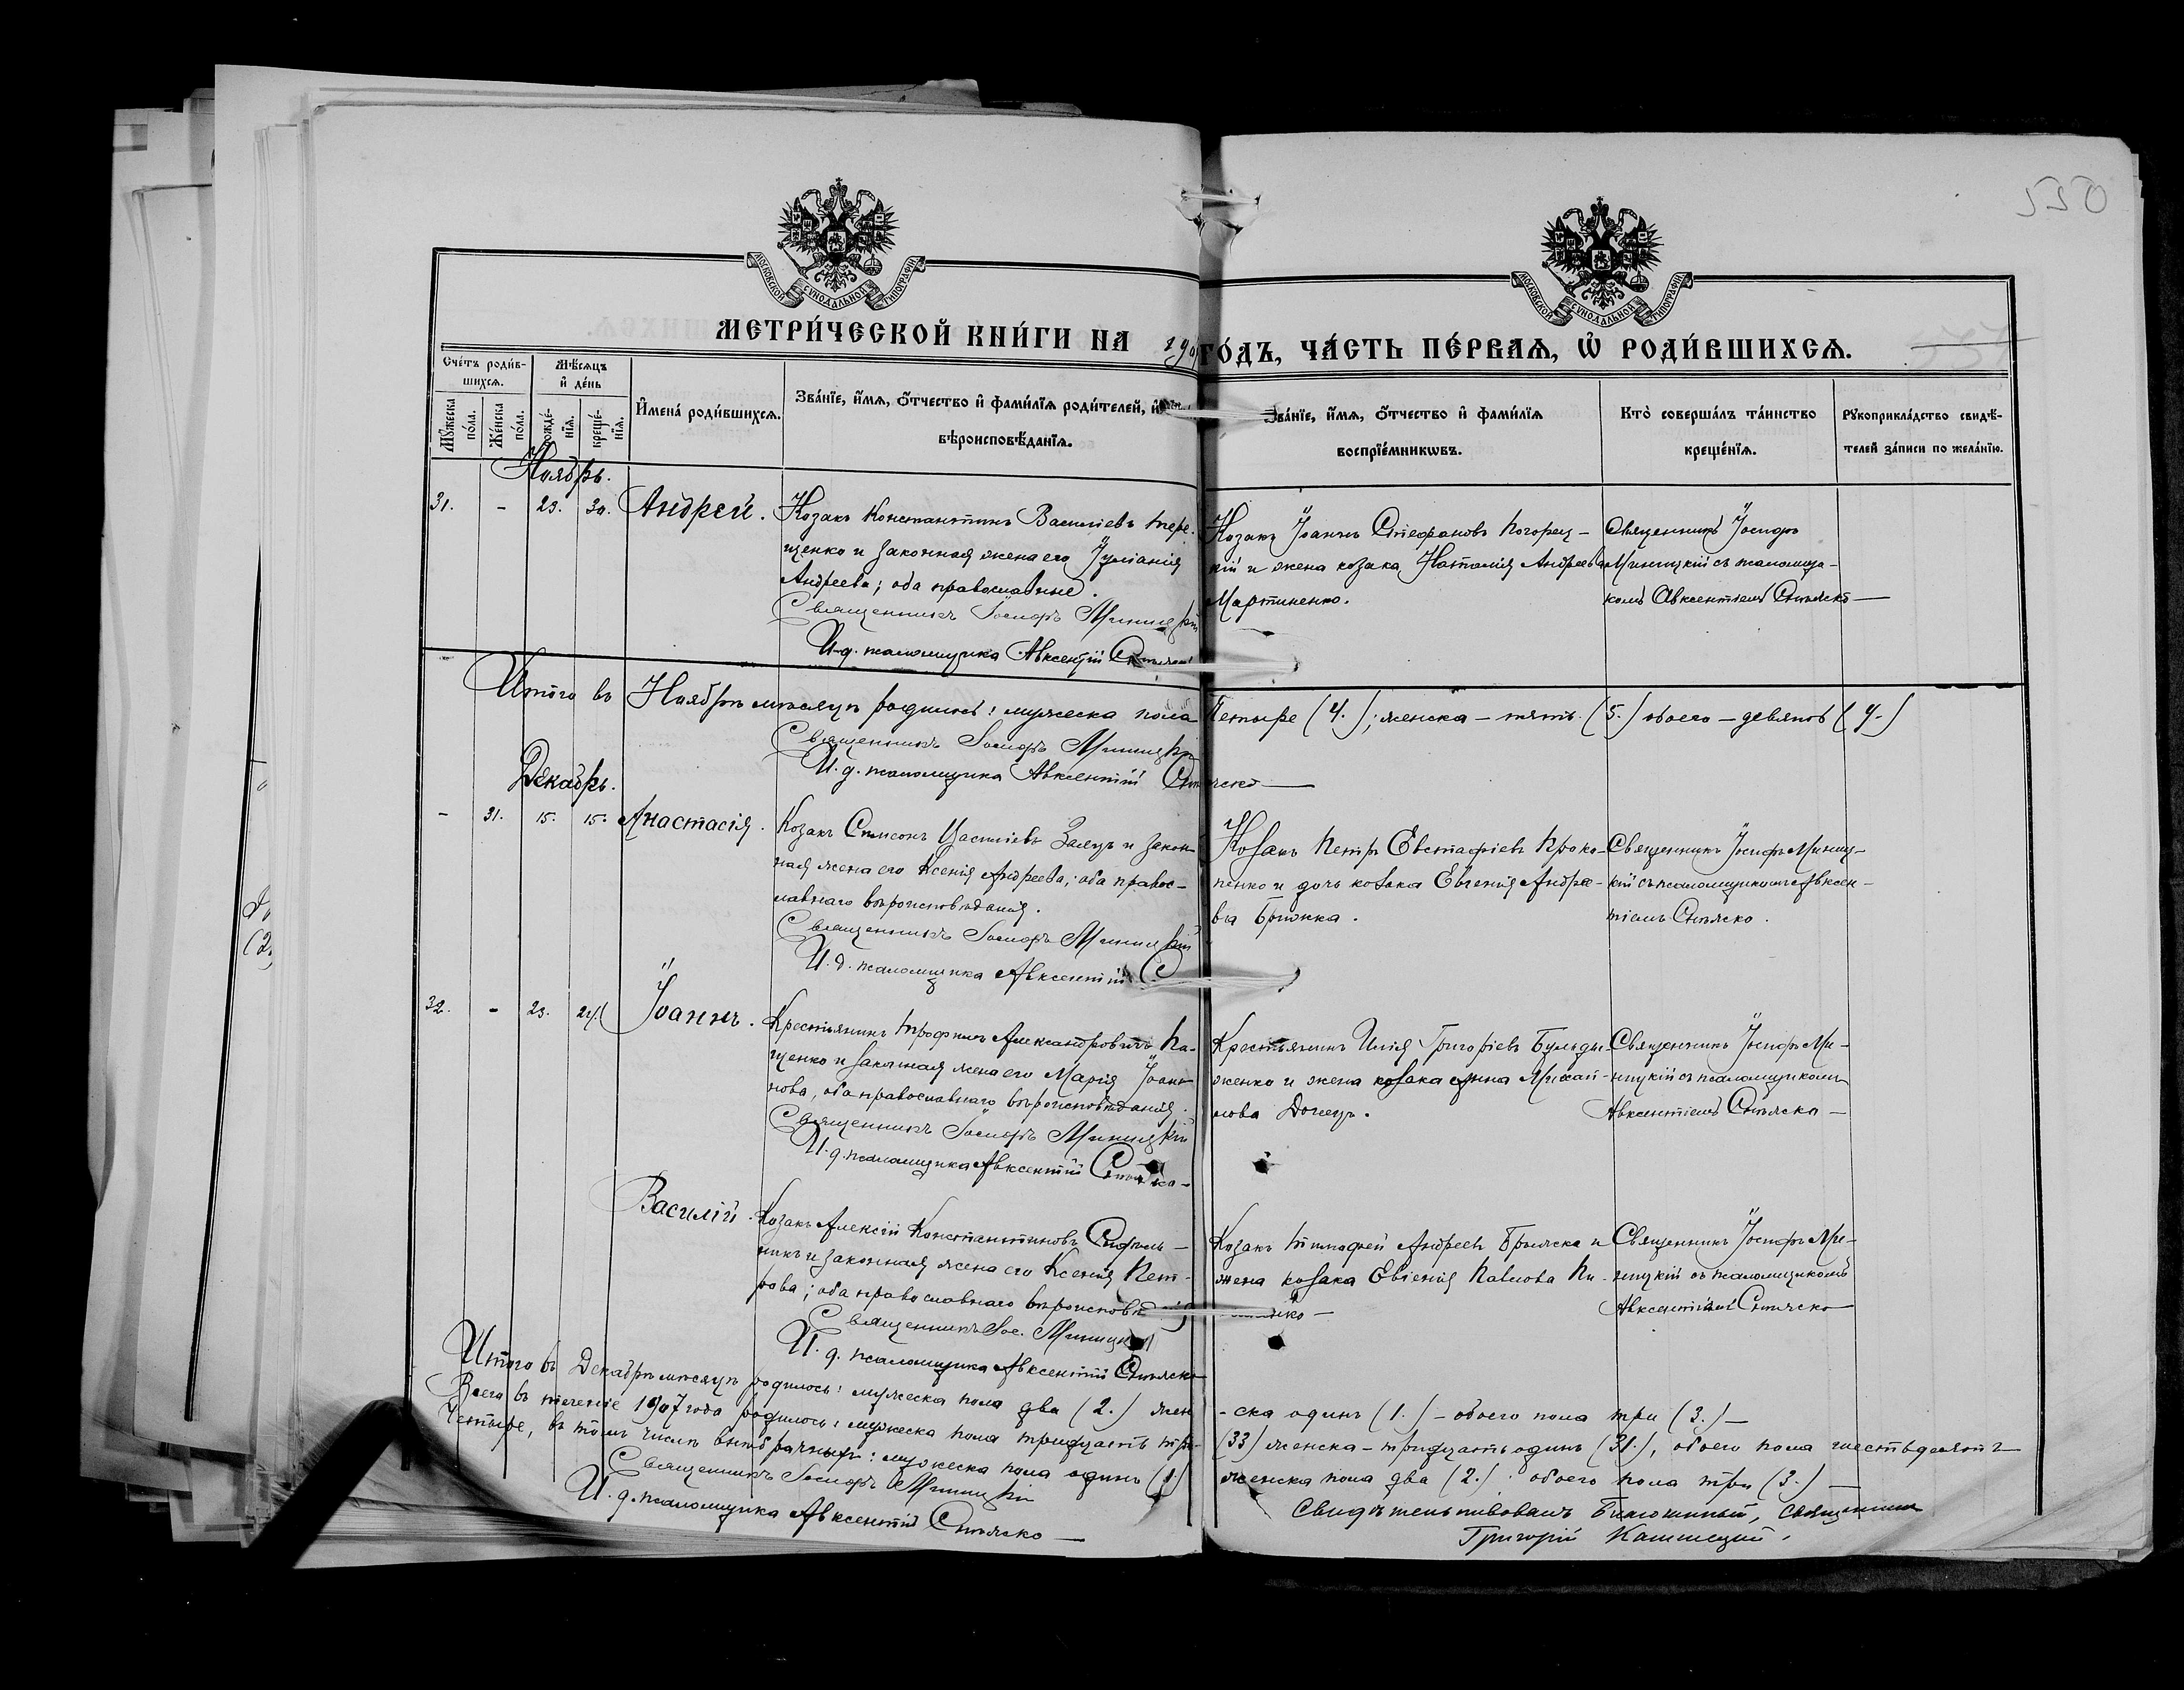 550
МОСКОВСКОЙ СѴНОДАЛЬНОЙ ТИПОГРАФІИ
МОСКОВСКОЙ СѴНОДАЛЬНОЙ ТИПОГРАФІИ
МЕТРИ́ЧЕСКОЙ КНИ́ГИ НА 190 ГО́ДЪ, ЧА́СТЬ ПЕ́РВАѦ, Ѡ҆ РОДИ́ВШИХСѦ.
Сче́тъ роди́в-
шихсѧ.
Мѣ́сѧцъ
и҆ де́нь
Мꙋ́жеска
по́ла.
Же́нска
по́ла.
рожде́-
нїѧ.
креще́-
нїѧ.
И҆мена̀ роди́вшихсѧ.
Зва́нїе, и҆́мѧ, ѻ҆́тчество и҆ фами́лїѧ роди́телей, и҆
вѣроисповѣ́данїѧ.
Зва́нїе, и҆́мѧ, ѻ҆́тчество и҆ фами́лїѧ
воспрїе́мникѡвъ.
Кто̀ соверша́лъ та́инство
креще́нїѧ.
Рꙋкоприкла́дство свидѣ́-
телей за́писи по жела́нїю.
Ноябрь.
31. - 23. 30. Андрей.
Козакъ Константинъ Васильевъ Тере-
щенко и законная жена его Іуліанія
Андреева; оба православные.
Священникъ Іосифъ Миницкій
И.д. псаломщика Авксентій
Козакъ Іоаннъ Стефановъ Погорец-
кій и жена козака Наталія Андреева
Мартиненко.
Священникъ Іосифъ
Миницкій съ псаломщи-
комъ Авксентіемъ
Итого въ Ноябрѣ мѣсяцѣ родилось: мужеска пола Четыре (4.); женска - пять (5.) обоего - девять (9.)
Священникъ Іосифъ Миницкій
И.д. псаломщика Авксентій
Декабрь.
- 31. 15. 15. Анастасія.
Козакъ Симеонъ Васильевъ Заяцъ и закон-
ная жена его Ксенія Андреева; оба правос-
лавнаго вѣроисповѣданія.
Священникъ Іосифъ Миницкій
И.д. псаломщика Авксентій
Козакъ Петръ Евстафіевъ Проко-
пенко и дочь козака Евгенія Андрее-
ва
Священникъ Іосифъ Миниц-
кій съ псаломщикомъ Авксен-
тіемъ
32. - 23. 24. Іоаннъ.
Крестьянинъ Трофимъ Александровичъ Па-
щенко и законная жена его Марія Іоан-
нова, оба православнаго вѣроисповѣданія.
Священникъ Іосифъ Миницкій
И.д. псаломщика Авксентій
Крестьянинъ Илія Григоріевъ
женко и жена козака Анна Михай-
лова Донецъ.
Священникъ Іосифъ Ми-
ницкій съ псаломщикомъ
Авксентіемъ
Василій.
Козакъ Алексій Константиновъ
никъ и законная жена его Ксенія Пет-
рова; оба православнаго
Священникъ Іос. Миницкій
И.д. псаломщика Авксентій
Козакъ Тимофей Андреевъ и
жена козака Евгенія Павлова
Священникъ Іосифъ Ми-
ницкій съ псаломщикомъ
Авксентіемъ
Итого въ Декабрѣ мѣсяцѣ родилось: мужеска пола два (2.) жен-ска одинъ (1.) - обоего пола три (3.) -
Всего въ теченіе 1907 года родилось: мужеска пола тридцать три- (33) женска - тридцать одинъ (31.), обоего пола шестьдесятъ
четыре, въ томъ числѣ внѣбрачныхъ: мужеска пола одинъ (1.) женска пола два (2.) обоего пола три (3.)
Священникъ Іосифъ Миницкій
И.д. псаломщика Авксентій
Свидѣтельствовалъ Благочинный, Священникъ
Григорій